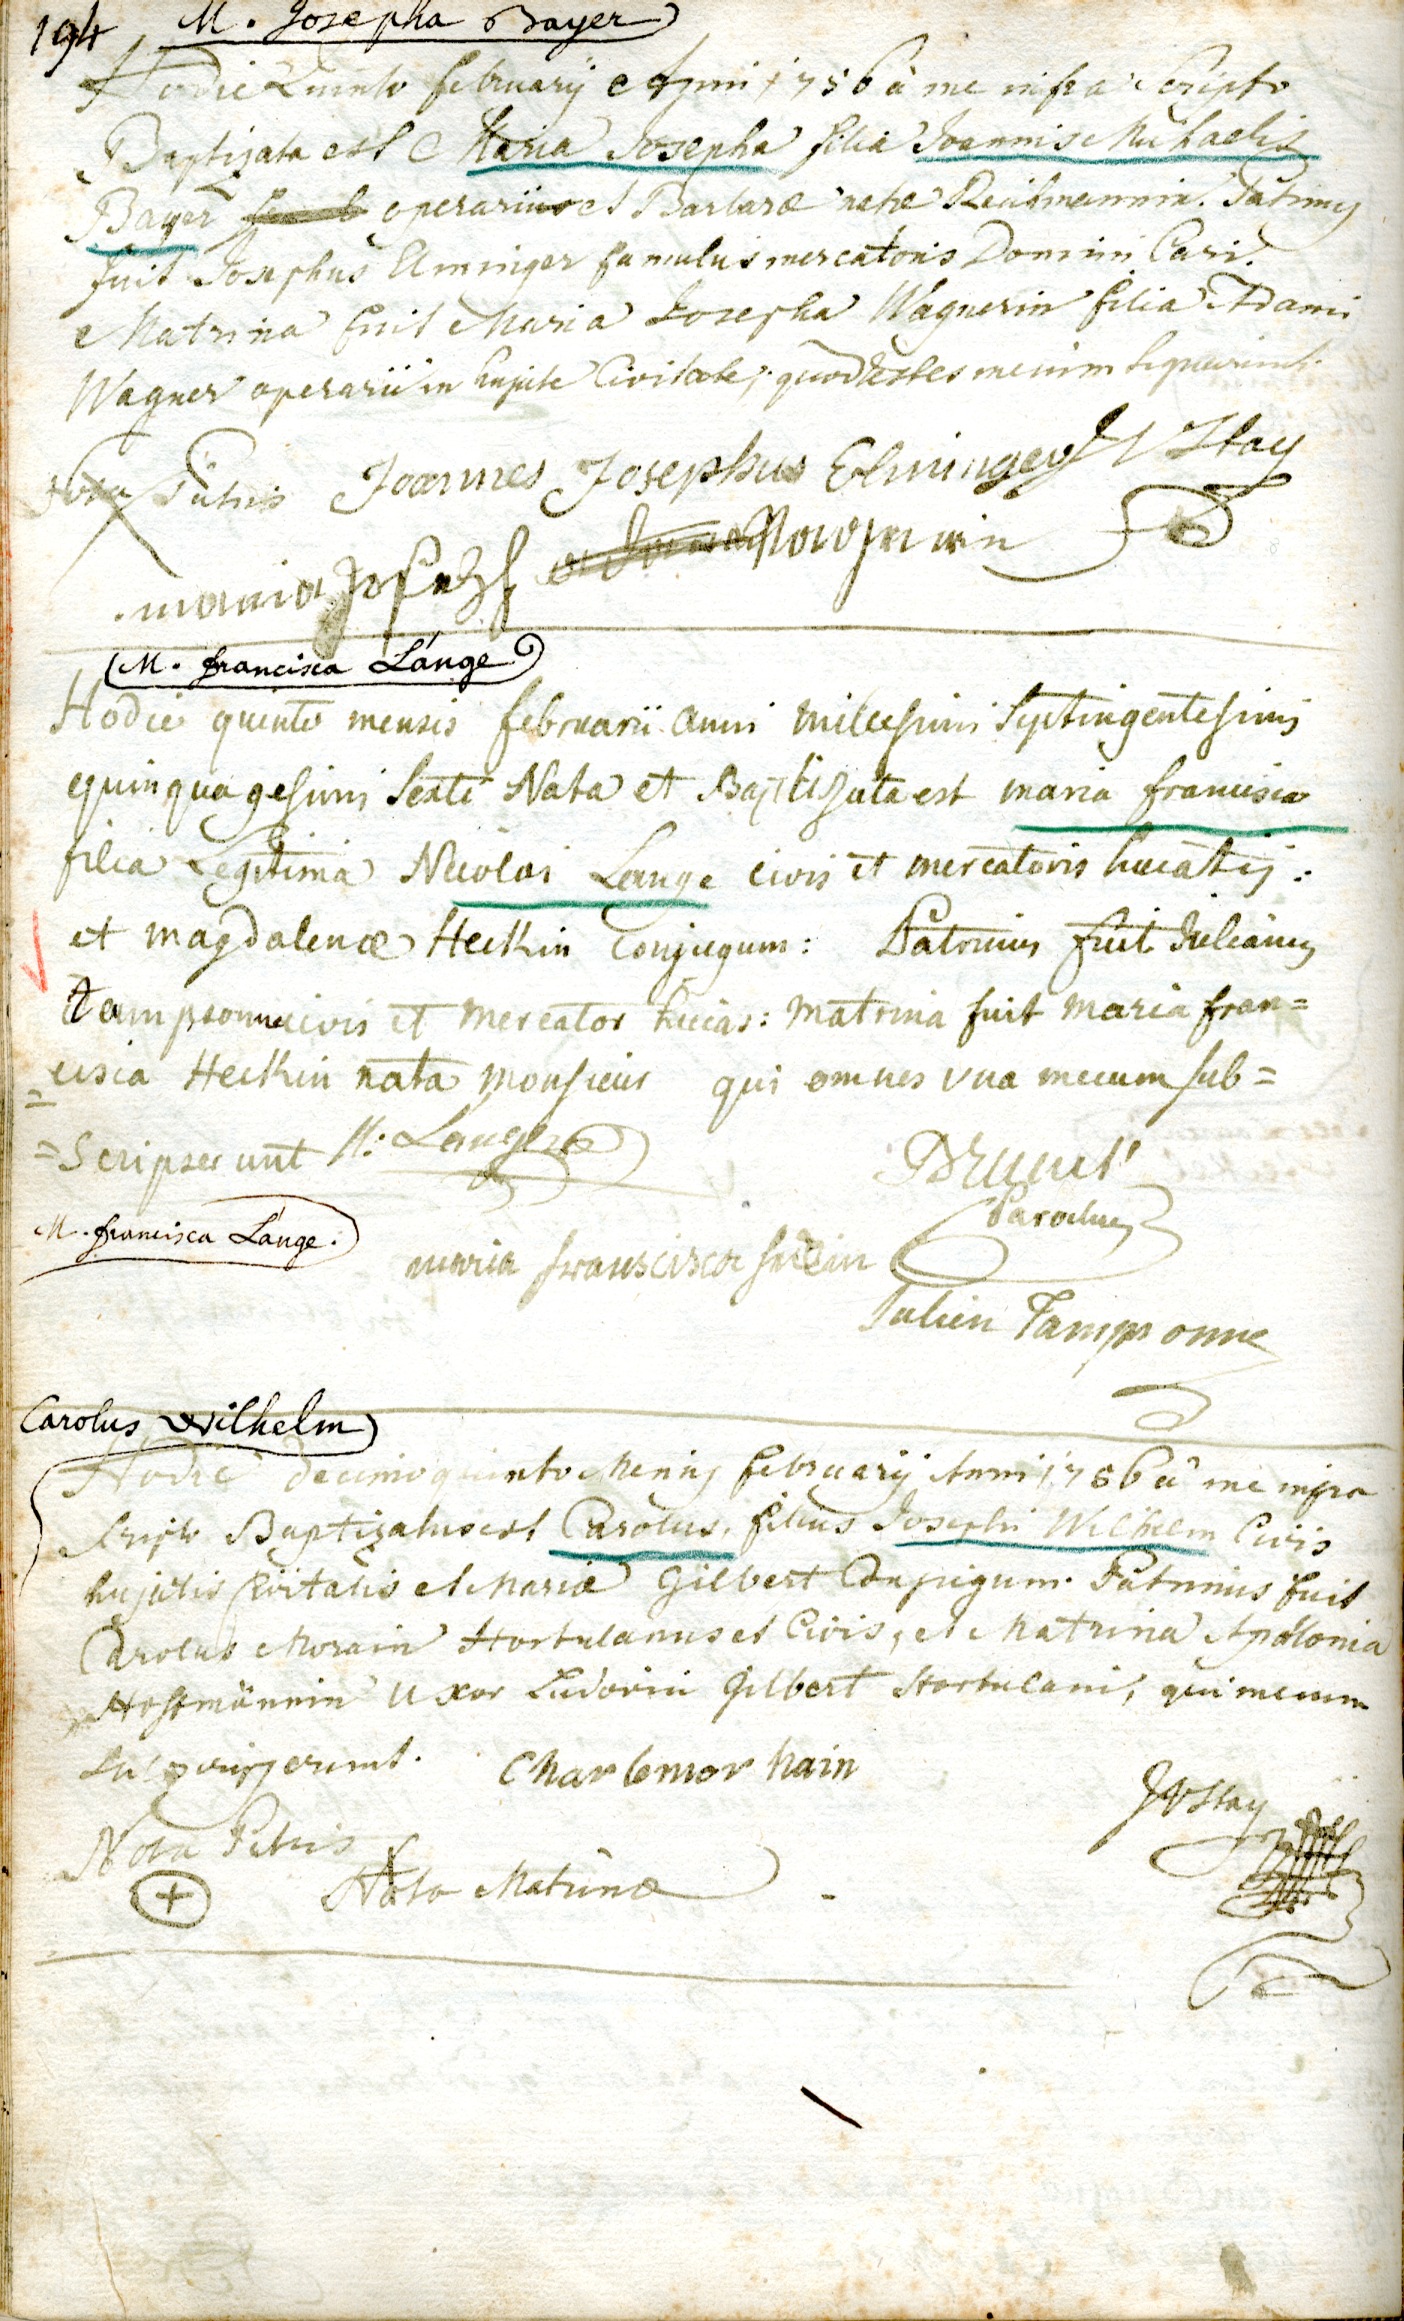 194 M. Josepha Bayer
Hodie Quinto februarij Anni 1756 à me infra Scripto
Baptizata est Maria Josepha filia Joannis Michaelis
Bayer operarii et Barbaræ natæ Reichmannin. Patrinus
fuit Josephus Elminger famulus mercatoris Domini Cari.
Matrina fuit Maria Josepha Wagnerin filia Adami
Wagner operarii in hujate Civitate; quod testes mecum signarunt.
Nota Patris Joannes Josephus Elminger Stay
maria Josepha Wagnerin
M. francisca Lange
Hodie quinto mensis februarii anni millesimi Septingentesimi
quinquagesimi Sexti Nata et Baptizata est maria francisca
filia Legitima Nicolai Lange civis et mercatoris hucatis:
et magdalenæ Heckin Conjugum: Patrinus fuit Julianus
tampsonne civis et mercator hucas: matrina fuit maria fran=
=cisca Heckin nata Monsieur qui omnes una mecum sub=
=Scripserunt N: Lange
Parochus
M. francisca Lange.
maria franscisca
Julien Tampsonne
Carolus Wilhelm
Hodie decimo quinto Mensis februarij Anni 1756 à me infra
scripto Baptizatus est Carolus, filius Josephi Wilhelm Civis
hujatis Civitatis et Mariæ Gilbert Conjugum. Patrinus fuit
Carolus Morain Hortulanus et Civis, et Matrina Apollonia
Hoffmännin Uxor Ludovici Gilbert Hortulani, qui mecum
subscripserunt. Charle mor hain
Stay
Nota Patris
+ Nota Matrinæ